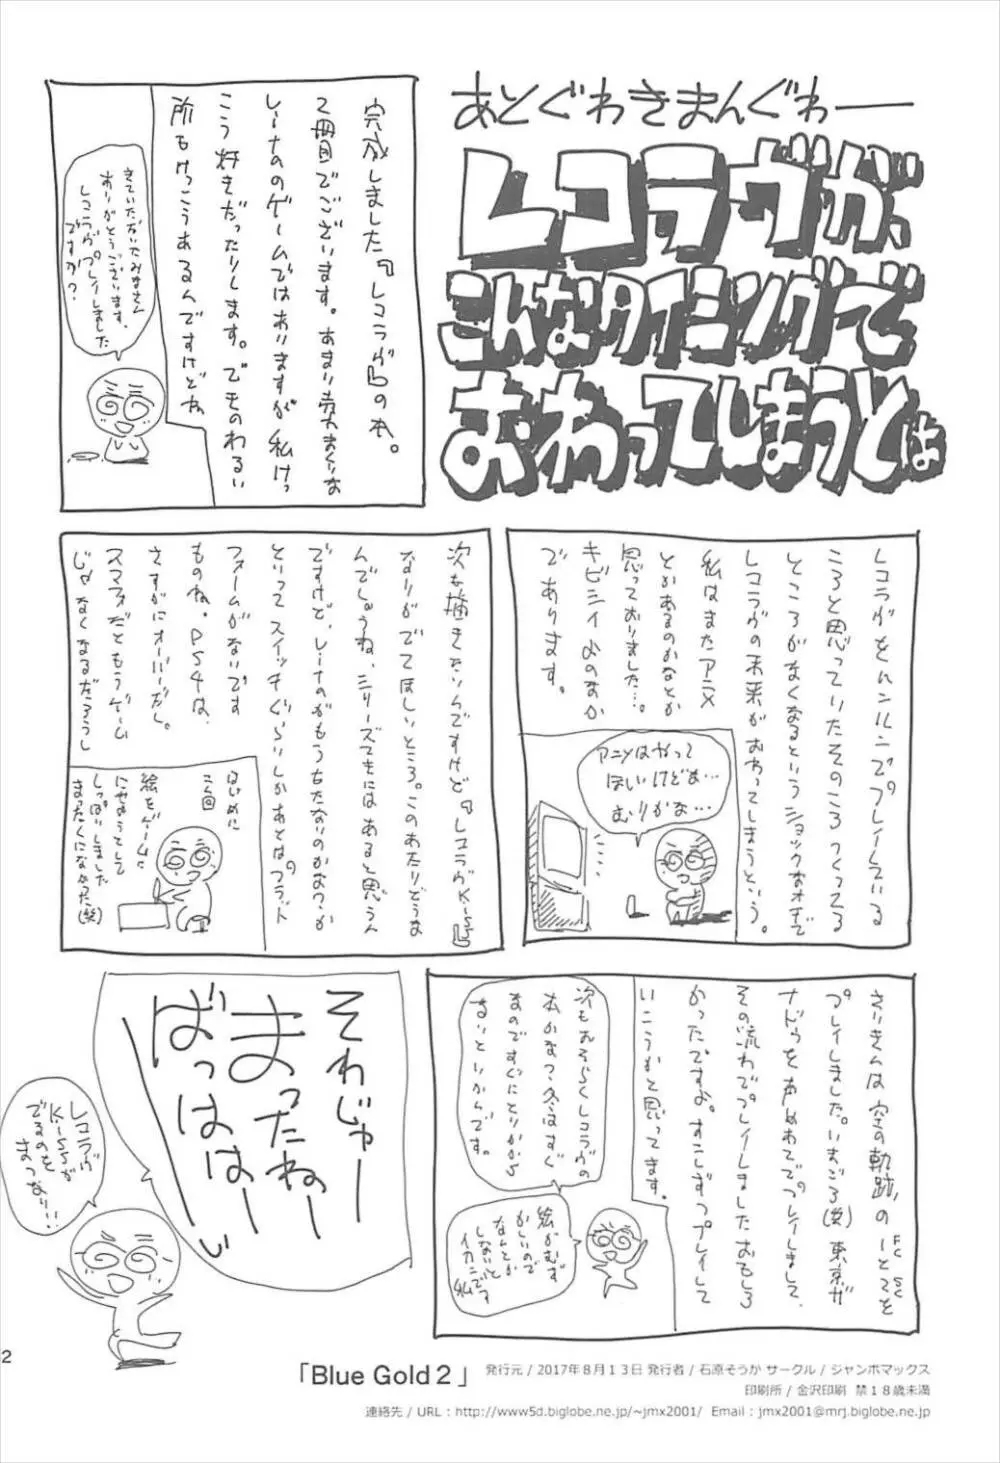 あとぐわきまんぐわー
レコラヴが、
こんなタイミングで
おわってしまうとは
完成しました『レコラヴ』の本。
2冊目でございます。あまり売れまくりな
レーナのゲームではありますが私けっ
こう好きだったりします。でものわるい
所もけっこうあるんですけどね
きていただいたみなさん
ありがとうございます。
レコラヴプレイしました
ですか？
レコラヴをハンルニでプレイしている
ころと思っていたそのころつくってる
ところがなくなるというショックなオチで
レコラヴの未来がおわってしまうという。
私はまたアニメ
とかあるのかなとか
思っておりました…。
キビシイよのなか
であります。
アニメはやって
ほしいけどぬ…
むりかな…
次も描きたいんですけど『レコラヴKiSS』
なりがでてほしいところ。このあたりどうな
んでしょうね、シリーズてきにはあると思うん
ですけど、レーナのがもうちたないのかなウか
といってスイッチぐらいしかあとはプラット
フォームがないです
ものね。PS4は、
さすがにオーバーだし。
スマフォだともうゲーム
じゃなくなるだろうし
はじめに
こん回
絵をゲームに
にせようとして
しっぱいしました
まったくになかった(笑)
さいきんは空の軌跡、のFCとSCを
プレイしました。いまごろ(笑)東京ザ
ナドゥをあわせてプレイしまして、
その流れでプレイしましたおもしろ
かったですよ。すこしずつプレイして
いこうかと思ってます。
次もおそらくレコラヴの
本かなっ？冬はすぐ
まのですぐにとりかから
ないといかんです。
絵がむず
かしいので
なんとか
しないと
イカンです
私
そわじゃー
まったねー
ばっはは〜い
レコラヴ
KiSSが
でるのを
まつなり!!
2
「Blue Gold 2」
発行元 / 2017年8月13日 発行者 / 石原そうか サークル / ジャンボマックス
印刷所 / 金沢印刷 禁18歳未満
連絡先 / URL : http://www5d.biglobe.ne.jp/~jmx2001/ Email : jmx2001@mrj.biglobe.ne.jp